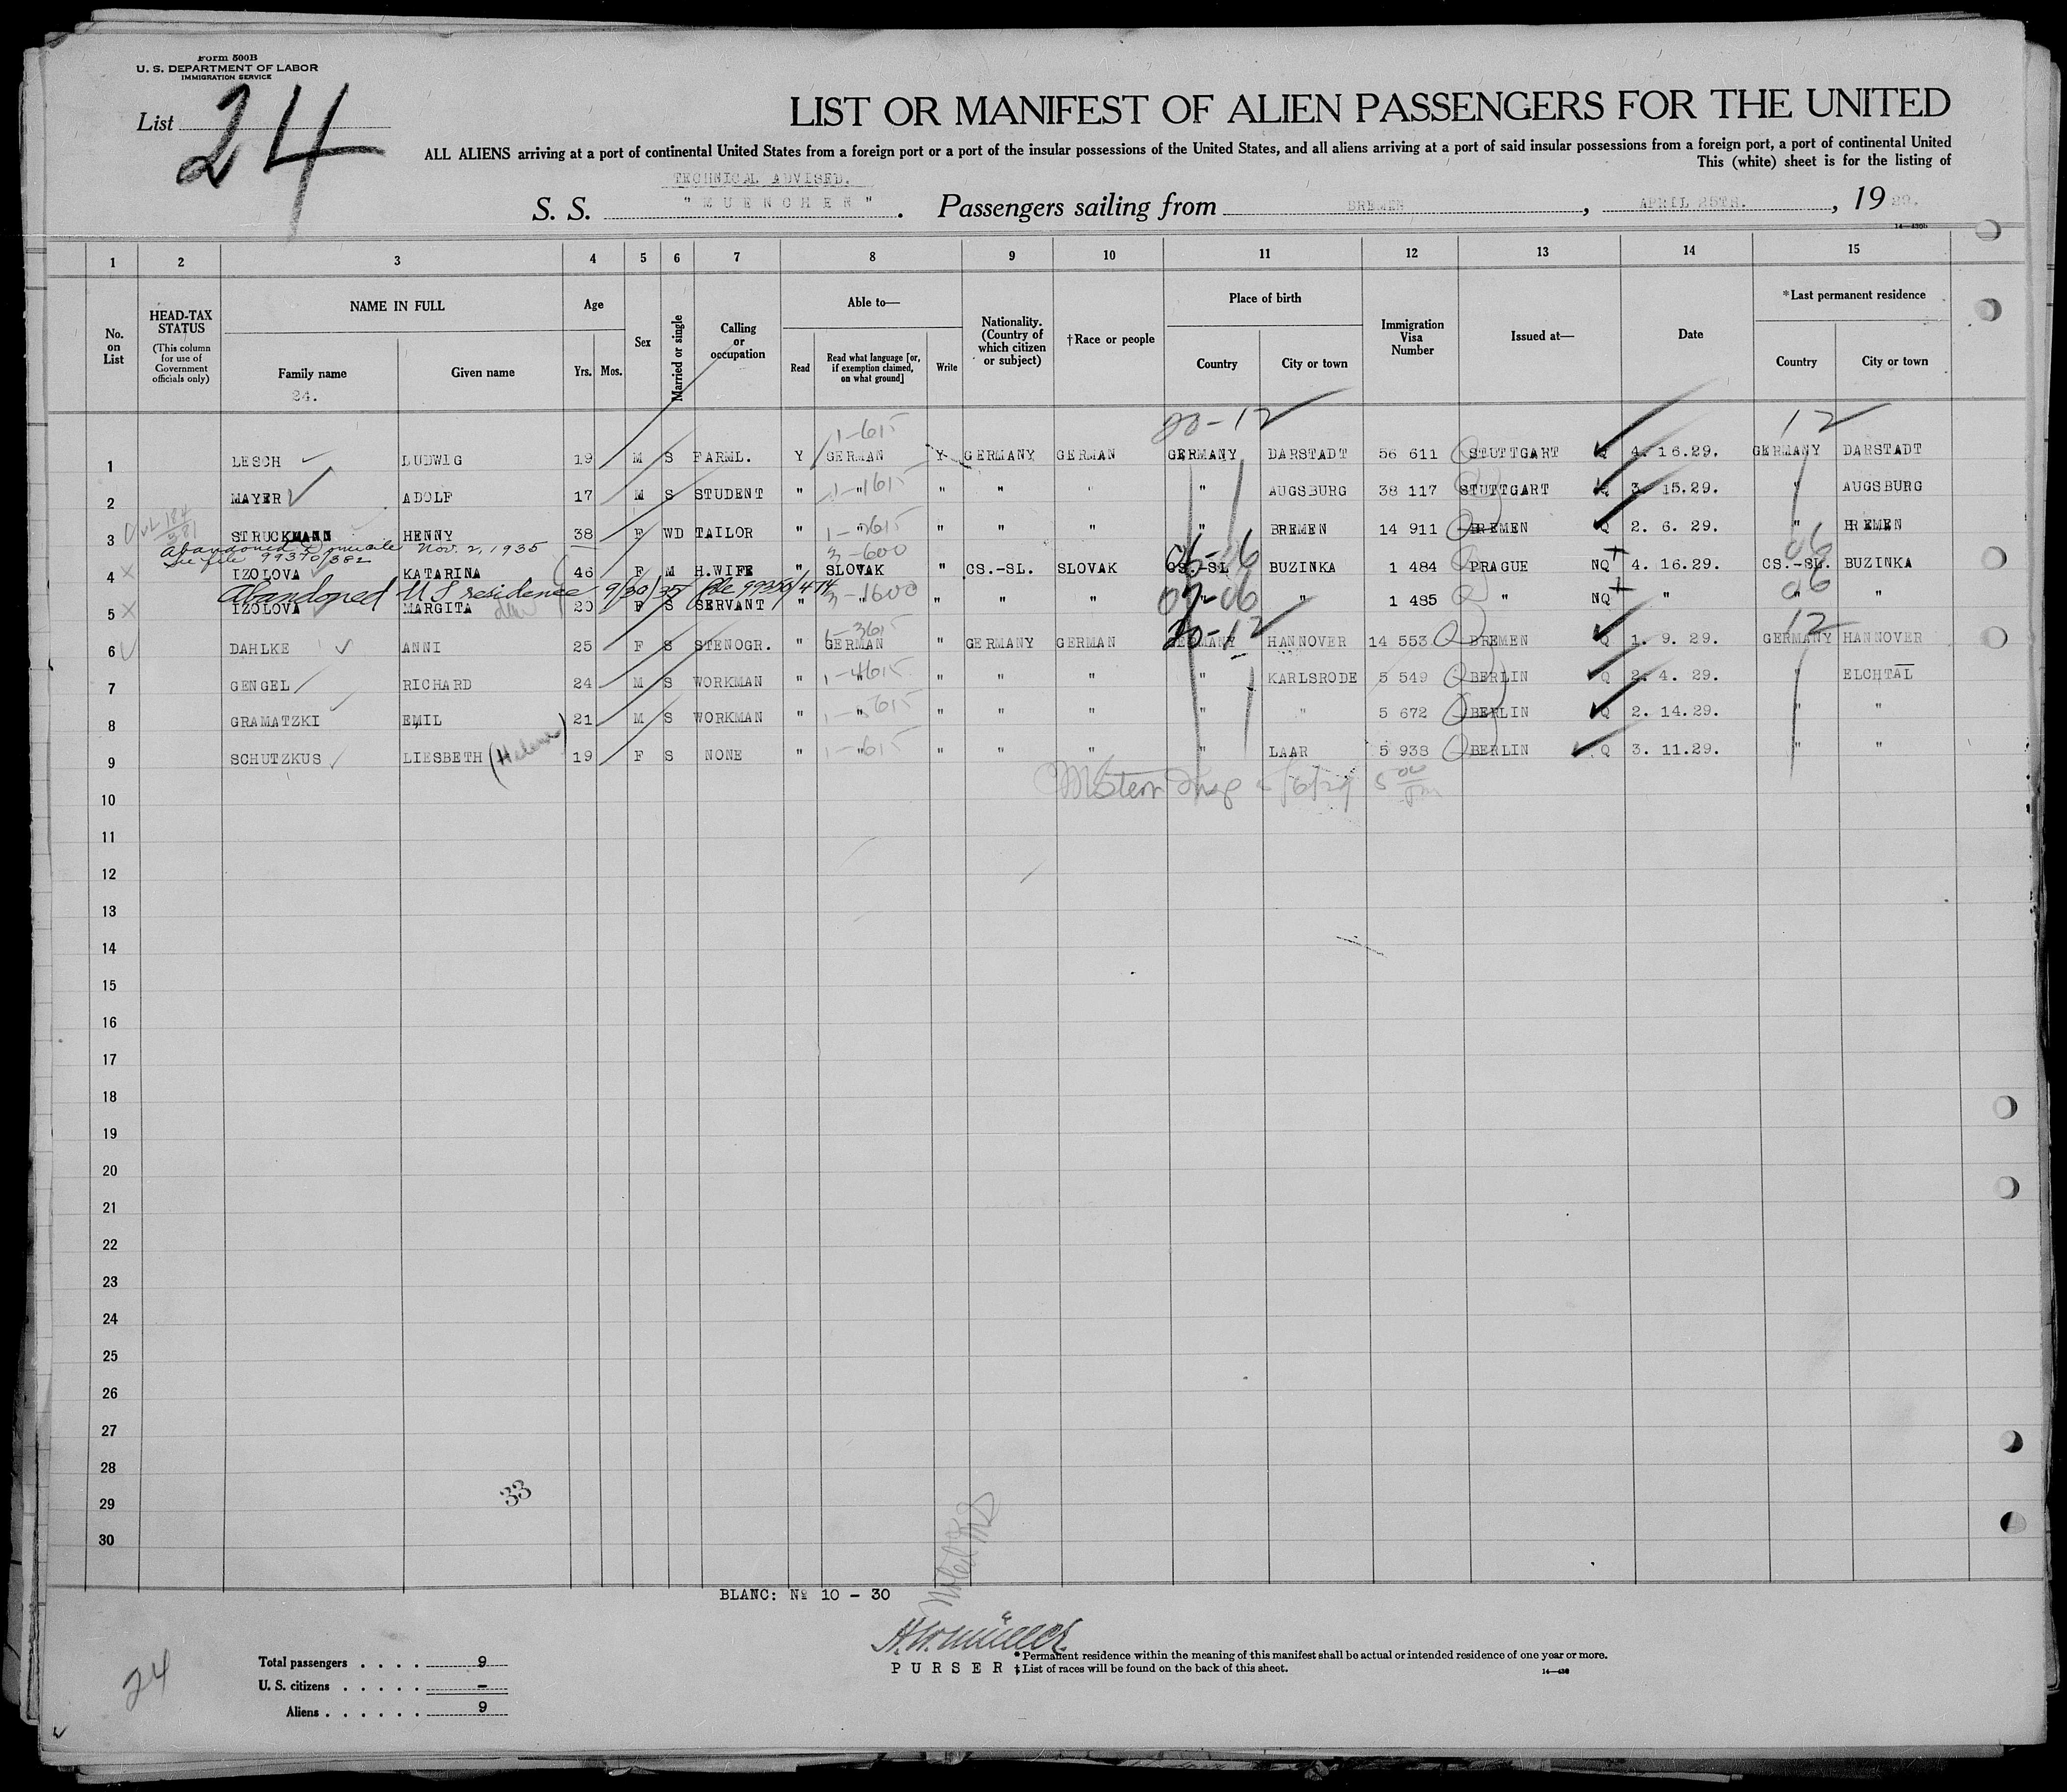 Form 500B
U. S. DEPARTMENT OF LABOR
IMMIGRATION SERVICE
List 24
LIST OR MANIFEST OF ALIEN PASSENGERS FOR THE UNITED
ALL ALIENS arriving at a port of continental United States from a foreign port or a port of the insular possessions of the United States, and all aliens arriving at a port of said insular possessions from a foreign port, a port of continental United
This (white) sheet is for the listing of
TECHNICAL ADVISED.
S. S. "MUENCHEN". Passengers sailing from BREMEN, APRIL 25TH., 1929.
14—430b
1 2 3 4 5 6 7 8 9 10 11 12 13 14 15
No. on List
HEAD-TAX STATUS (This column for use of Government officials only)
NAME IN FULL
Family name
Given name
24.
Age
Yrs. Mos.
Sex
Married or single
Calling or occupation
Able to—
Read
Read what language [or, if exemption claimed, on what ground]
Write
Nationality. (Country of which citizen or subject)
†Race or people
Place of birth
Country
City or town
Immigration Visa Number
Issued at—
Date
*Last permanent residence
Country
City or town
1-615 20-12 12
1 LESCH LUDWIG 19 M S FARML. Y GERMAN Y GERMANY GERMAN GERMANY DARSTADT 56 611 STUTTGART Q 4. 16.29. GERMANY DARSTADT
2 MAYER ADOLF 17 M S STUDENT " 1-1615 " " " " " AUGSBURG 38 117 STUTTGART Q 3. 15.29. " AUGSBURG
3 STRUCKMANN HENNY 38 F WD TAILOR " " " " " " BREMEN 14 911 BREMEN Q 2. 6. 29. " BREMEN
Abandoned Domicile Nov. 2, 1935
See file 99370/382
3-600 06-06 06
4 IZOLOVA KATARINA 46 F M H.WIFE " SLOVAK " CS.-SL. SLOVAK CS.-SL BUZINKA 1 484 PRAGUE NQ 4. 16.29. CS.-SL. BUZINKA
Abandoned U S residence 9/30/35 file 3-1600 06
5 IZOLOVA MARGITA 20 F S SERVANT " " " " " " " 1 485 " NQ " " "
1-3615 20-12 12
6 DAHLKE ANNI 25 F S STENOGR. " GERMAN " GERMANY GERMAN GERMANY HANNOVER 14 553 BREMEN Q 1. 9. 29. GERMANY HANNOVER
7 GENGEL RICHARD 24 M S WORKMAN " 1-4615 " " " " " KARLSRODE 5 549 BERLIN Q 2. 4. 29. " ELCHTAL
8 GRAMATZKI EMIL 21 M S WORKMAN " " " " " " " 5 672 BERLIN Q 2. 14.29. " "
9 SCHUTZKUS LIESBETH (Helene) 19 F S NONE " 1-615 " " " " " LAAR 5 938 BERLIN Q 3. 11.29. " "
10
11
12
13
14
15
16
17
18
19
20
21
22
23
24
25
26
27
28
29
30
33
BLANC: № 10 - 30
PURSER
*Permanent residence within the meaning of this manifest shall be actual or intended residence of one year or more.
‡List of races will be found on the back of this sheet.
14—430
24
Total passengers . . . . 9
U. S. citizens . . . . . -
Aliens . . . . . . 9